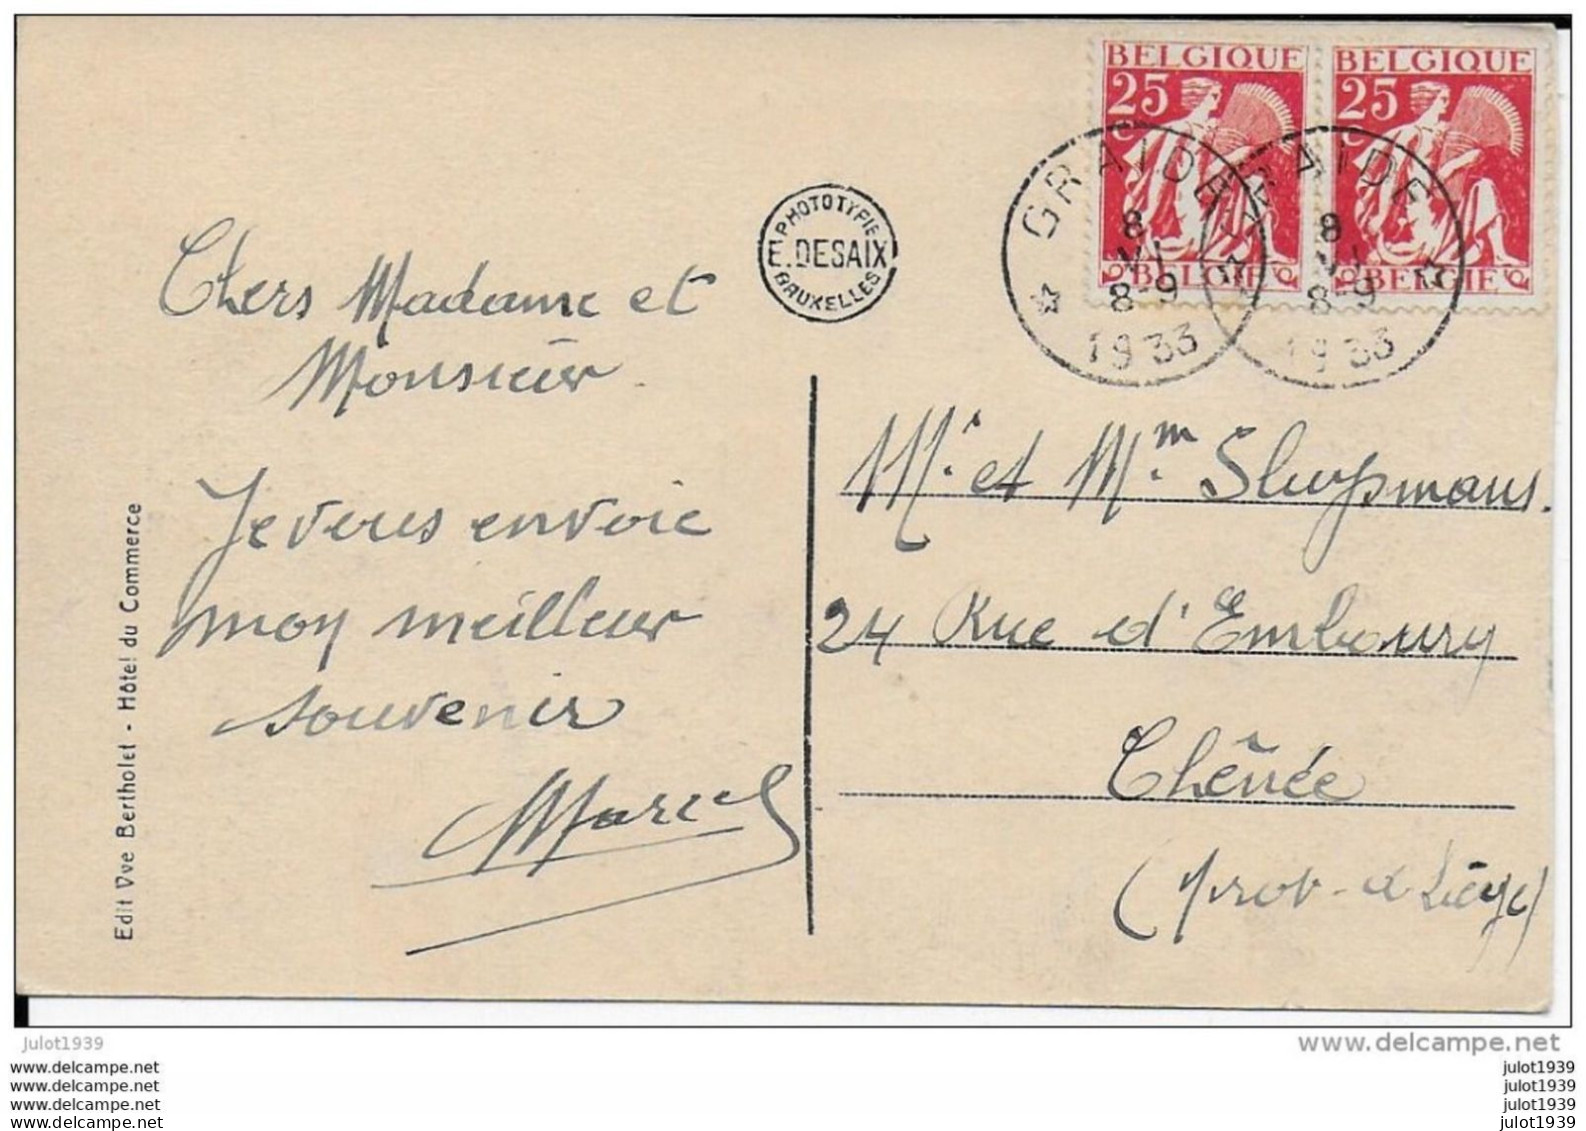 BELGIQUE BELGIQUE
25 25
c
BELGIË BELGIE
GRAIDE GRAIDE
8 8
VI VI
8-9 8-9
1933 1933
PHOTOTYPIE
E. DESAIX
BRUXELLES
Chers Madame et
Monsieur
Je vous envoie
mon meilleur
souvenir
Marcel
Mr. et Mm Sluysmans.
24 Rue d'Embourg
Chênée
(prov. d Liége)
Edit Vve Bertholet - Hôtel du Commerce
julot1939
www.delcampe.net
www.delcampe.net
www.delcampe.net
www.delcampe.net
www.delcampe.net
julot1939
julot1939
julot1939
julot1939